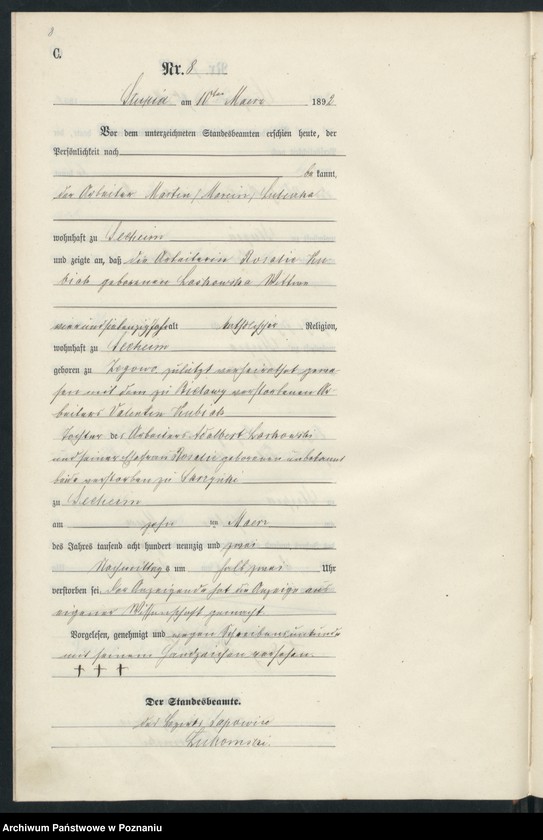 8
C.
Nr. 8
Slupia am 10ten Maerz 1892
Vor dem unterzeichneten Standesbeamten erschien heute, der
Persönlichkeit nach
be kannt,
der Arbeiter Martin /Marcin/
wohnhaft zu Seeheim
und zeigte an, daß die Arbeiterin Rosalie Ku-
biak geborenen Laskowska Wittwe
alt katholischer Religion,
wohnhaft zu Seeheim
geboren zu zuletzt verheirathet gewe-
sen mit dem zu verstorbenen Ar-
beiters Valentin Kubiak
Tochter des Arbeiters Adalbert Laskowski
und seiner Ehefrau Rosalie geborenen unbekannt
beide verstorben zu
zu Seeheim
am zehn ten Maerz
des Jahres tausend acht hundert neunzig und zwei
Nachmittags um halb zwei Uhr
verstorben sei. Der Anzeigende hat die Anzeige aus
eigener Wissenschaft gemacht
Vorgelesen, genehmigt und wegen Schreibensunkunde
mit seinem Handzeichen versehen.
† † †
Der Standesbeamte.
Archiwum Państwowe w Poznaniu